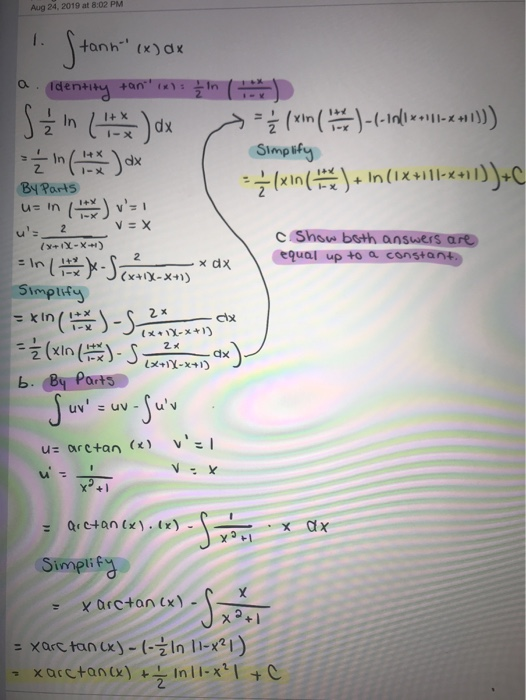 Aug 24, 2019 at 8:02 PM
1. ∫ tanh⁻¹ (x) dx
a. Identity tan⁻¹ (x) = 1/2 ln ( 1+x / 1-x )
∫ 1/2 ln ( 1+x / 1-x ) dx
= 1/2 ln ( 1+x / 1-x ) dx
By Parts
u = ln ( 1+x / 1-x ) v' = 1
u' = 2 / (x+1)(-x+1) v = x
= ln ( 1+x / 1-x ) x - ∫ 2 / (x+1)(-x+1) x dx
Simplify
= x ln ( 1+x / 1-x ) - ∫ 2x / (x+1)(-x+1) dx
= 1/2 ( x ln ( 1+x / 1-x ) - ∫ 2x / (x+1)(-x+1) dx )
= 1/2 ( x ln ( 1+x / 1-x ) - (- ln (|x+1||-x+1|)))
Simplify
= 1/2 ( x ln ( 1+x / 1-x ) + ln (|x+1||-x+1|)) + C
c. Show both answers are
equal up to a constant.
b. By Parts
∫ uv' = uv - ∫ u'v
u = arctan (x) v' = 1
u' = 1 / x²+1 v = x
= arctan (x) · (x) - ∫ 1 / x²+1 · x dx
Simplify
= x arctan (x) - ∫ x / x²+1
= x arctan (x) - (- 1/2 ln |1-x²|)
= x arctan (x) + 1/2 ln |1-x²| + C